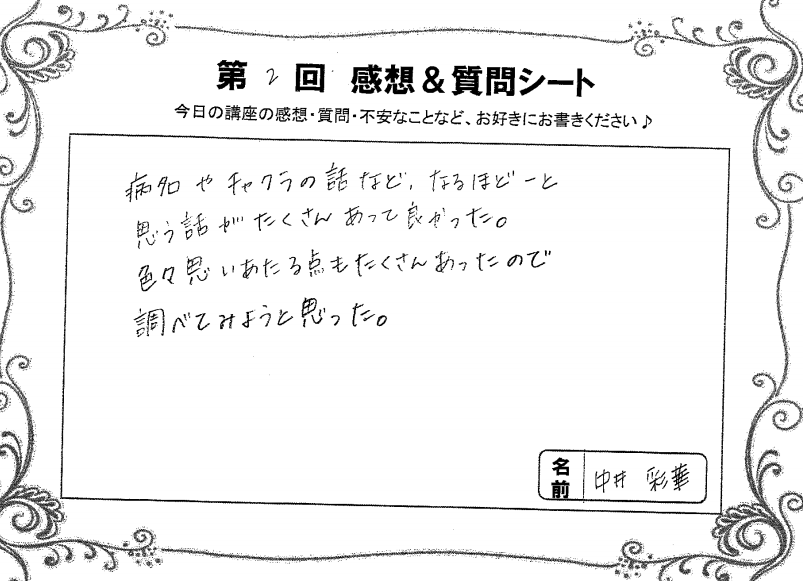 第2回 感想＆質問シート
今日の講座の感想・質問・不安なことなど、お好きにお書きください♪
病名やチャクラの話など、なるほどーと
思う話がたくさんあって良かった。
色々思いあたる点もたくさんあったので
調べてみようと思った。
名前 中井 彩華